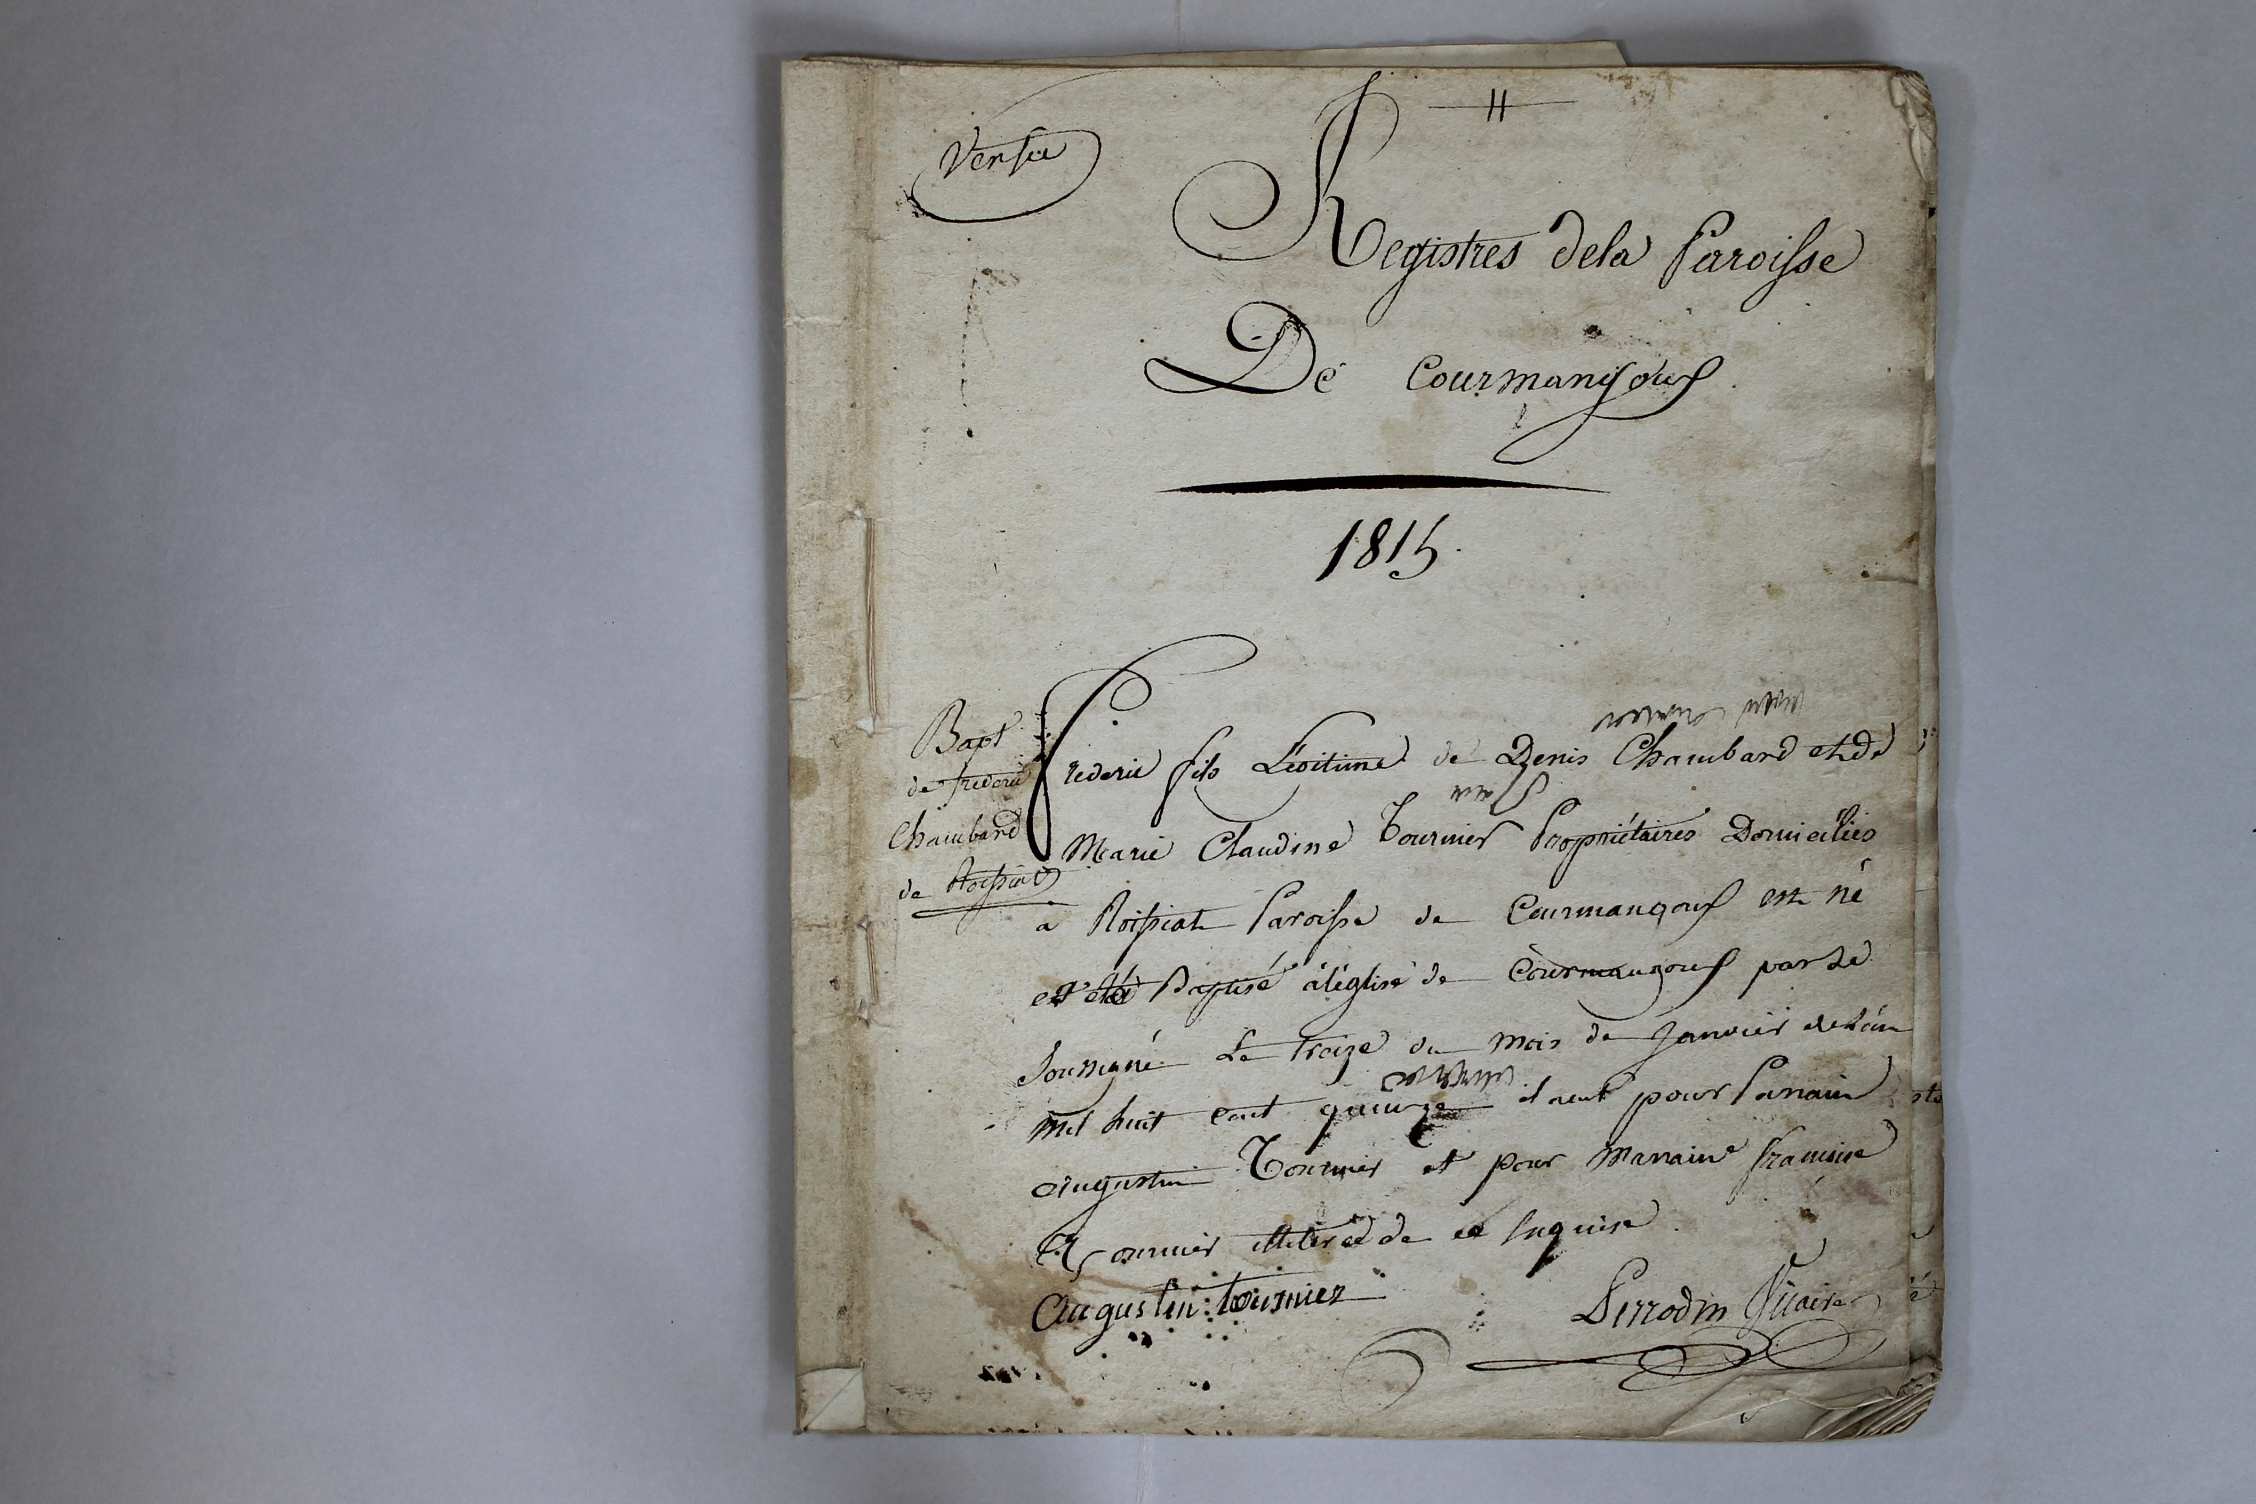 H
Registres dela Paroisse
De Courmangoux
1815.
Bapt
de frederic
Chambard
de Roissiat
frederic fils Légitime de Denis Chambard et de
Marie Claudine Tournier Propriétaires Domiciliés
a Roissiat Paroisse de Courmangoux est né
et été Baptisé à léglise de Courmangoux par le
soussigné Le treize du mois de Janvier de lan
mil huit cent quinze il a eut pour Parain
augustin Tournier et pour Marraine françoise
Tournier de ce enquise
Augustin tournier
Perrodin Vicaire